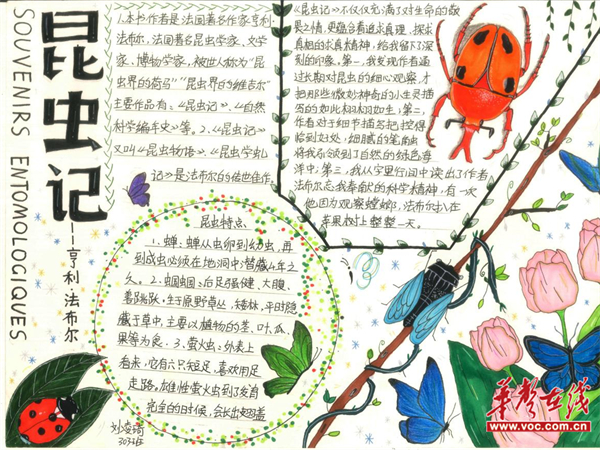 昆虫记
SOUVENIRS ENTOMOLOGIQUES
——亨利法布尔
1.本书作者是法国著名作家亨利·
法布尔，法国著名昆虫学家、文学
家、博物学家，被世人称为“昆
虫界的荷马”“昆虫界的维吉尔”
主要作品有：《昆虫记》、《自然
科学编年史》等。2.《昆虫记》
又叫《昆虫物语》、《昆虫学札
记》是法布尔的传世佳作
《昆虫记》不仅仅充满了对生命的敬
畏之情，更蕴含着追求真理、探求
真相的求真精神，给我留下了深
刻的印象。第一，我发现作者通
过长期对昆虫的细心观察，才
把那些微妙神奇的小生灵描
写的如此栩栩如生；第二，
作者对于细节描写把控得
恰到好处，细腻的笔触
将我们领到了自然的绿色海
洋中；第三，我从字里行间中读出了作者
法布尔忘我奉献的科学精神，有一次
他因为观察螳螂，法布尔趴在
苹果树上整整一天。
昆虫特点
1.蝉：蝉从虫卵到幼虫，再
到成虫必须在地洞中潜藏4年之
久。2.蝈蝈：后足强健、大腹、
善跳跃，生于原野草丛、矮林，平时隐
藏于草中，主要以植物的茎、叶、瓜、
果等为食。3.萤火虫：外表上
看来，它有六只短足，喜欢用足
走路，雄性萤火虫到了发育
完全的时候，会长出翅盖
3031班
华声在线
www.voc.com.cn